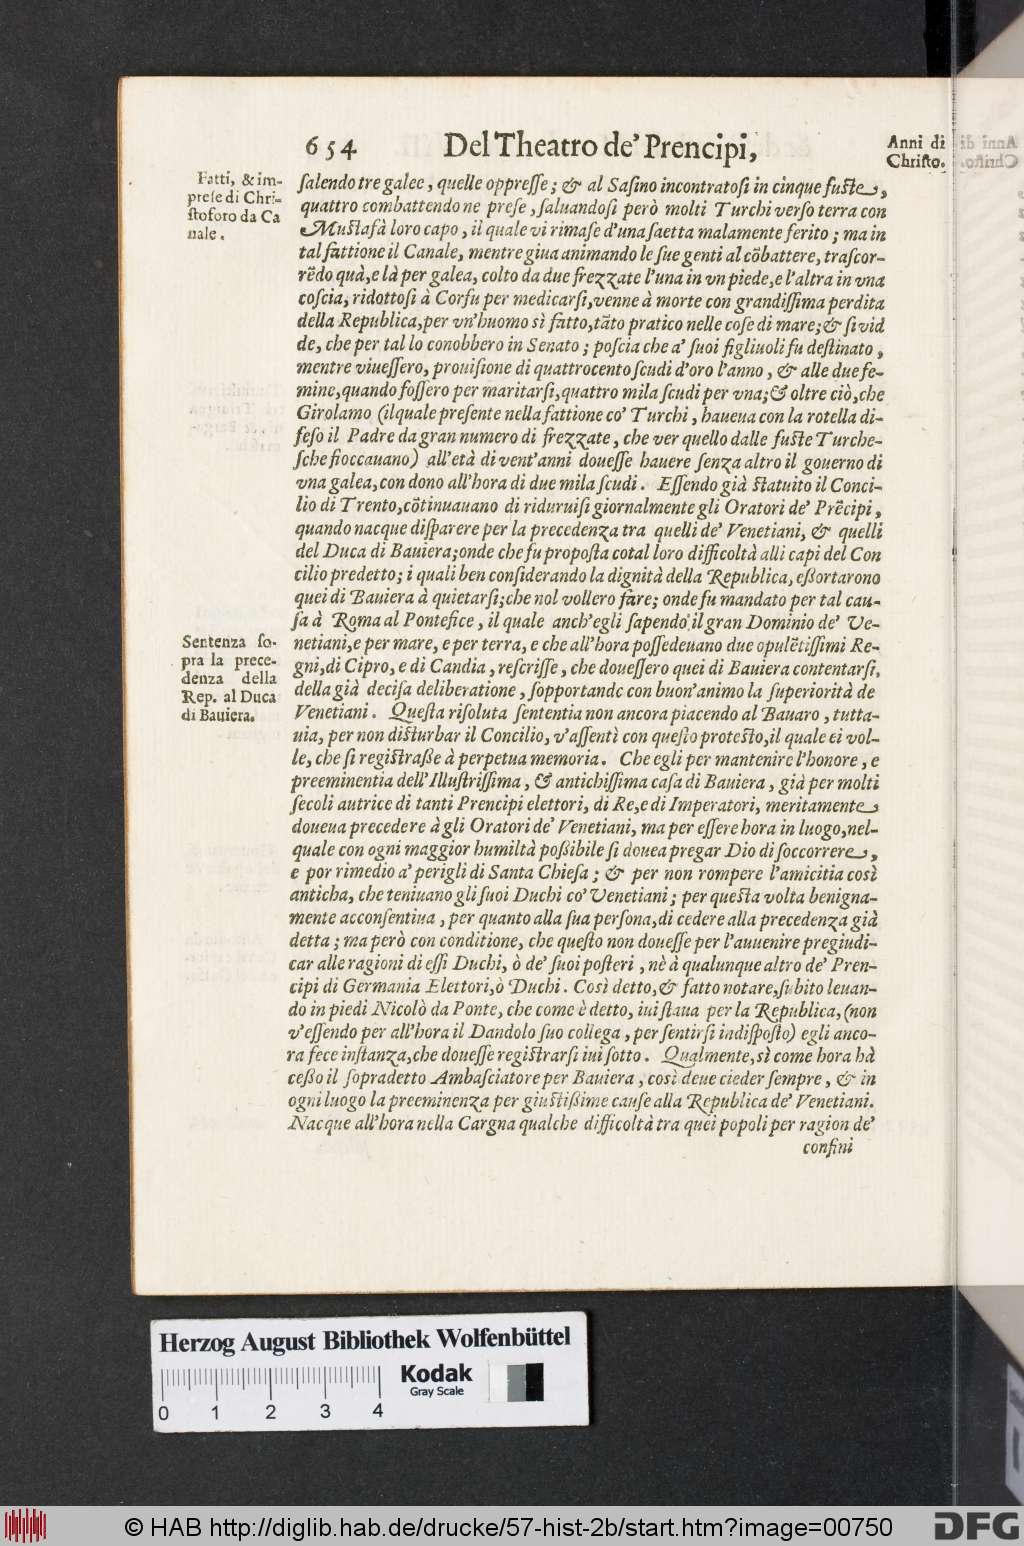 654 Del Theatro de' Prencipi,
Anni di
Christo.
Fatti, & im-
prese di Chri-
stoforo da Ca
nale.
salendo tre galee, quelle oppresse; & al Sasino incontratosi in cinque fuste,
quattro combattendo ne prese, saluandosi però molti Turchi verso terra con
Mustafà loro capo, il quale vi rimase d'una saetta malamente ferito; ma in
tal fattione il Canale, mentre giua animando le sue genti al cõbattere, trascor-
rẽdo quà, e là per galea, colto da due frezzate l'una in vn piede, e l'altra in vna
coscia, ridottosi à Corfu per medicarsi, venne à morte con grandissima perdita
della Republica, per vn'huomo sì fatto, tãto pratico nelle cose di mare; & si vid
de, che per tal lo conobbero in Senato; poscia che a' suoi figliuoli fu destinato,
mentre viuessero, prouisione di quattrocento scudi d'oro l'anno, & alle due fe-
mine, quando fossero per maritarsi, quattro mila scudi per vna; & oltre ciò, che
Girolamo (ilquale presente nella fattione co' Turchi, haueua con la rotella di-
feso il Padre da gran numero di frezzate, che ver quello dalle fuste Turche-
sche fioccauano) all'età di vent'anni douesse hauere senza altro il gouerno di
vna galea, con dono all'hora di due mila scudi. Essendo già statuito il Conci-
lio di Trento, cõtinuauano di riduruisi giornalmente gli Oratori de' Prẽcipi,
quando nacque disparere per la precedenza tra quelli de' Venetiani, & quelli
del Duca di Bauiera; onde che fu proposta cotal loro difficoltà alli capi del Con
cilio predetto; i quali ben considerando la dignità della Republica, essortarono
quei di Bauiera à quietarsi; che nol vollero fare; onde fu mandato per tal cau-
sa à Roma al Pontefice, il quale anch'egli sapendo il gran Dominio de' Ve-
Sentenza so-
pra la prece-
denza della
Rep. al Duca
di Bauiera.
netiani, e per mare, e per terra, e che all'hora possedeuano due opulẽtissimi Re-
gni, di Cipro, e di Candia, rescrisse, che douessero quei di Bauiera contentarsi,
della già decisa deliberatione, sopportando con buon'animo la superiorità de
Venetiani. Questa risoluta sententia non ancora piacendo al Bauaro, tutta-
uia, per non disturbar il Concilio, v'assentì con questo protesto, il quale ei vol-
le, che si registrasse à perpetua memoria. Che egli per mantenire l'honore, e
preeminentia dell'Illustrissima, & antichissima casa di Bauiera, già per molti
secoli autrice di tanti Prencipi elettori, di Re, e di Imperatori, meritamente
doueua precedere à gli Oratori de' Venetiani, ma per essere hora in luogo, nel-
quale con ogni maggior humiltà possibile si douea pregar Dio di soccorrere,
e por rimedio a' perigli di Santa Chiesa; & per non rompere l'amicitia così
anticha, che teniuano gli suoi Duchi co' Venetiani; per questa volta benigna-
mente acconsentiua, per quanto alla sua persona, di cedere alla precedenza già
detta; ma però con conditione, che questo non douesse per l'auuenire pregiudi-
car alle ragioni di essi Duchi, ò de' suoi posteri, nè à qualunque altro de' Pren-
cipi di Germania Elettori, ò Duchi. Così detto, & fatto notare, subito leuan-
do in piedi Nicolò da Ponte, che come è detto, iui staua per la Republica, (non
v'essendo per all'hora il Dandolo suo collega, per sentirsi indisposto) egli anco-
ra fece instanza, che douesse registrarsi iui sotto. Qualmente, sì come hora hà
cesso il sopradetto Ambasciatore per Bauiera, così deue cieder sempre, & in
ogni luogo la preeminenza per giustissime cause alla Republica de' Venetiani.
Nacque all'hora nella Cargna qualche difficoltà tra quei popoli per ragion de'
confini
Herzog August Bibliothek Wolfenbüttel
Kodak
Gray Scale
0 1 2 3 4
© HAB http://diglib.hab.de/drucke/57-hist-2b/start.htm?image=00750
DFG